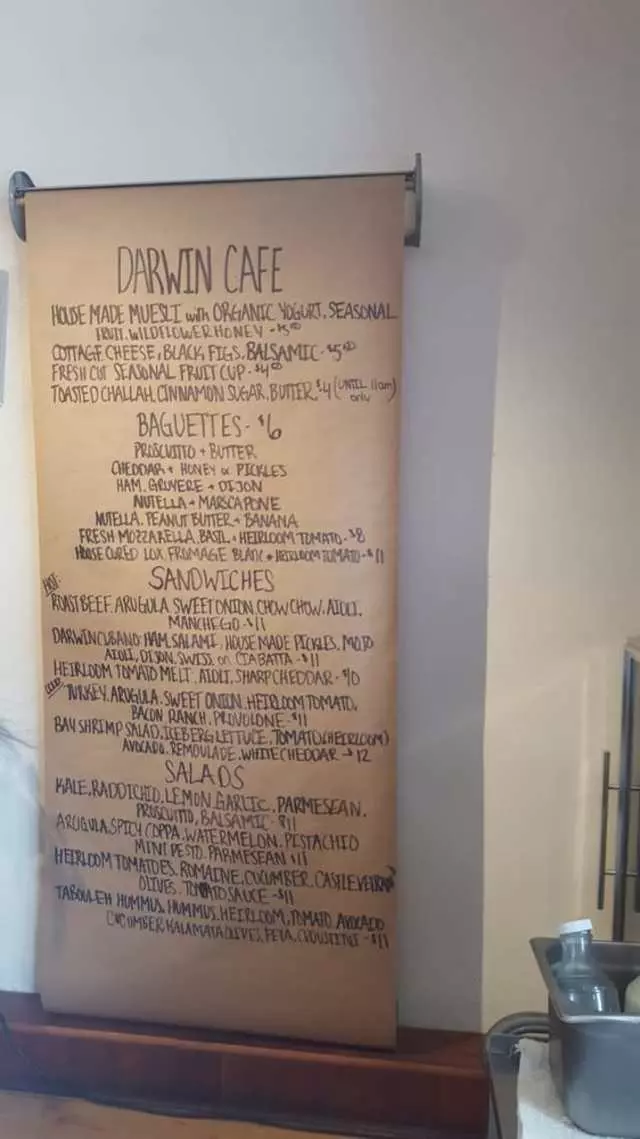 DARWIN CAFE
HOUSE MADE MUESLI with ORGANIC YOGURT, SEASONAL
FRUIT, WILDFLOWER HONEY - $5⁰⁰
COTTAGE CHEESE, BLACK FIGS, BALSAMIC - $5⁰⁰
FRESH CUT SEASONAL FRUIT CUP - $4⁰⁰
TOASTED CHALLAH, CINNAMON SUGAR, BUTTER $4 (UNTIL 11am only)
BAGUETTES - $6
PROSCUITTO + BUTTER
CHEDDAR + HONEY or PICKLES
HAM, GRUYERE + DIJON
NUTELLA + MARSCAPONE
NUTELLA, PEANUT BUTTER + BANANA
FRESH MOZZARELLA, BASIL + HEIRLOOM TOMATO - $8
HOUSE CURED LOX, FROMAGE BLANC + HEIRLOOM TOMATO - $11
SANDWICHES
HOT:
ROAST BEEF, ARUGULA, SWEET ONION, CHOW CHOW, AIOLI,
MANCHEGO - $11
DARWIN CUBANO: HAM, SALAMI, HOUSE MADE PICKLES, MOJO
AIOLI, DIJON, SWISS on CIABATTA - $11
HEIRLOOM TOMATO MELT, AIOLI, SHARP CHEDDAR - $10
COLD:
TURKEY, ARUGULA, SWEET ONION, HEIRLOOM TOMATO,
BACON RANCH, PROVOLONE - $11
BAY SHRIMP SALAD, ICEBERG LETTUCE, TOMATO (HEIRLOOM)
AVOCADO, REMOULADE, WHITE CHEDDAR - 12
SALADS
KALE, RADDICHIO, LEMON, GARLIC, PARMESEAN,
PROSCUITTO, BALSAMIC - $11
ARUGULA, SPICY COPPA, WATERMELON, PISTACHIO
MINT PESTO, PARMESEAN $11
HEIRLOOM TOMATOES, ROMAINE, CUCUMBER, CASTLEVETRANO
OLIVES, TOMATO SAUCE - $11
TABOULEH HUMMUS, HUMMUS, HEIRLOOM, TOMATO, AVOCADO
CUCUMBER, KALAMATA OLIVES, FETA, CROUSTINI - $11